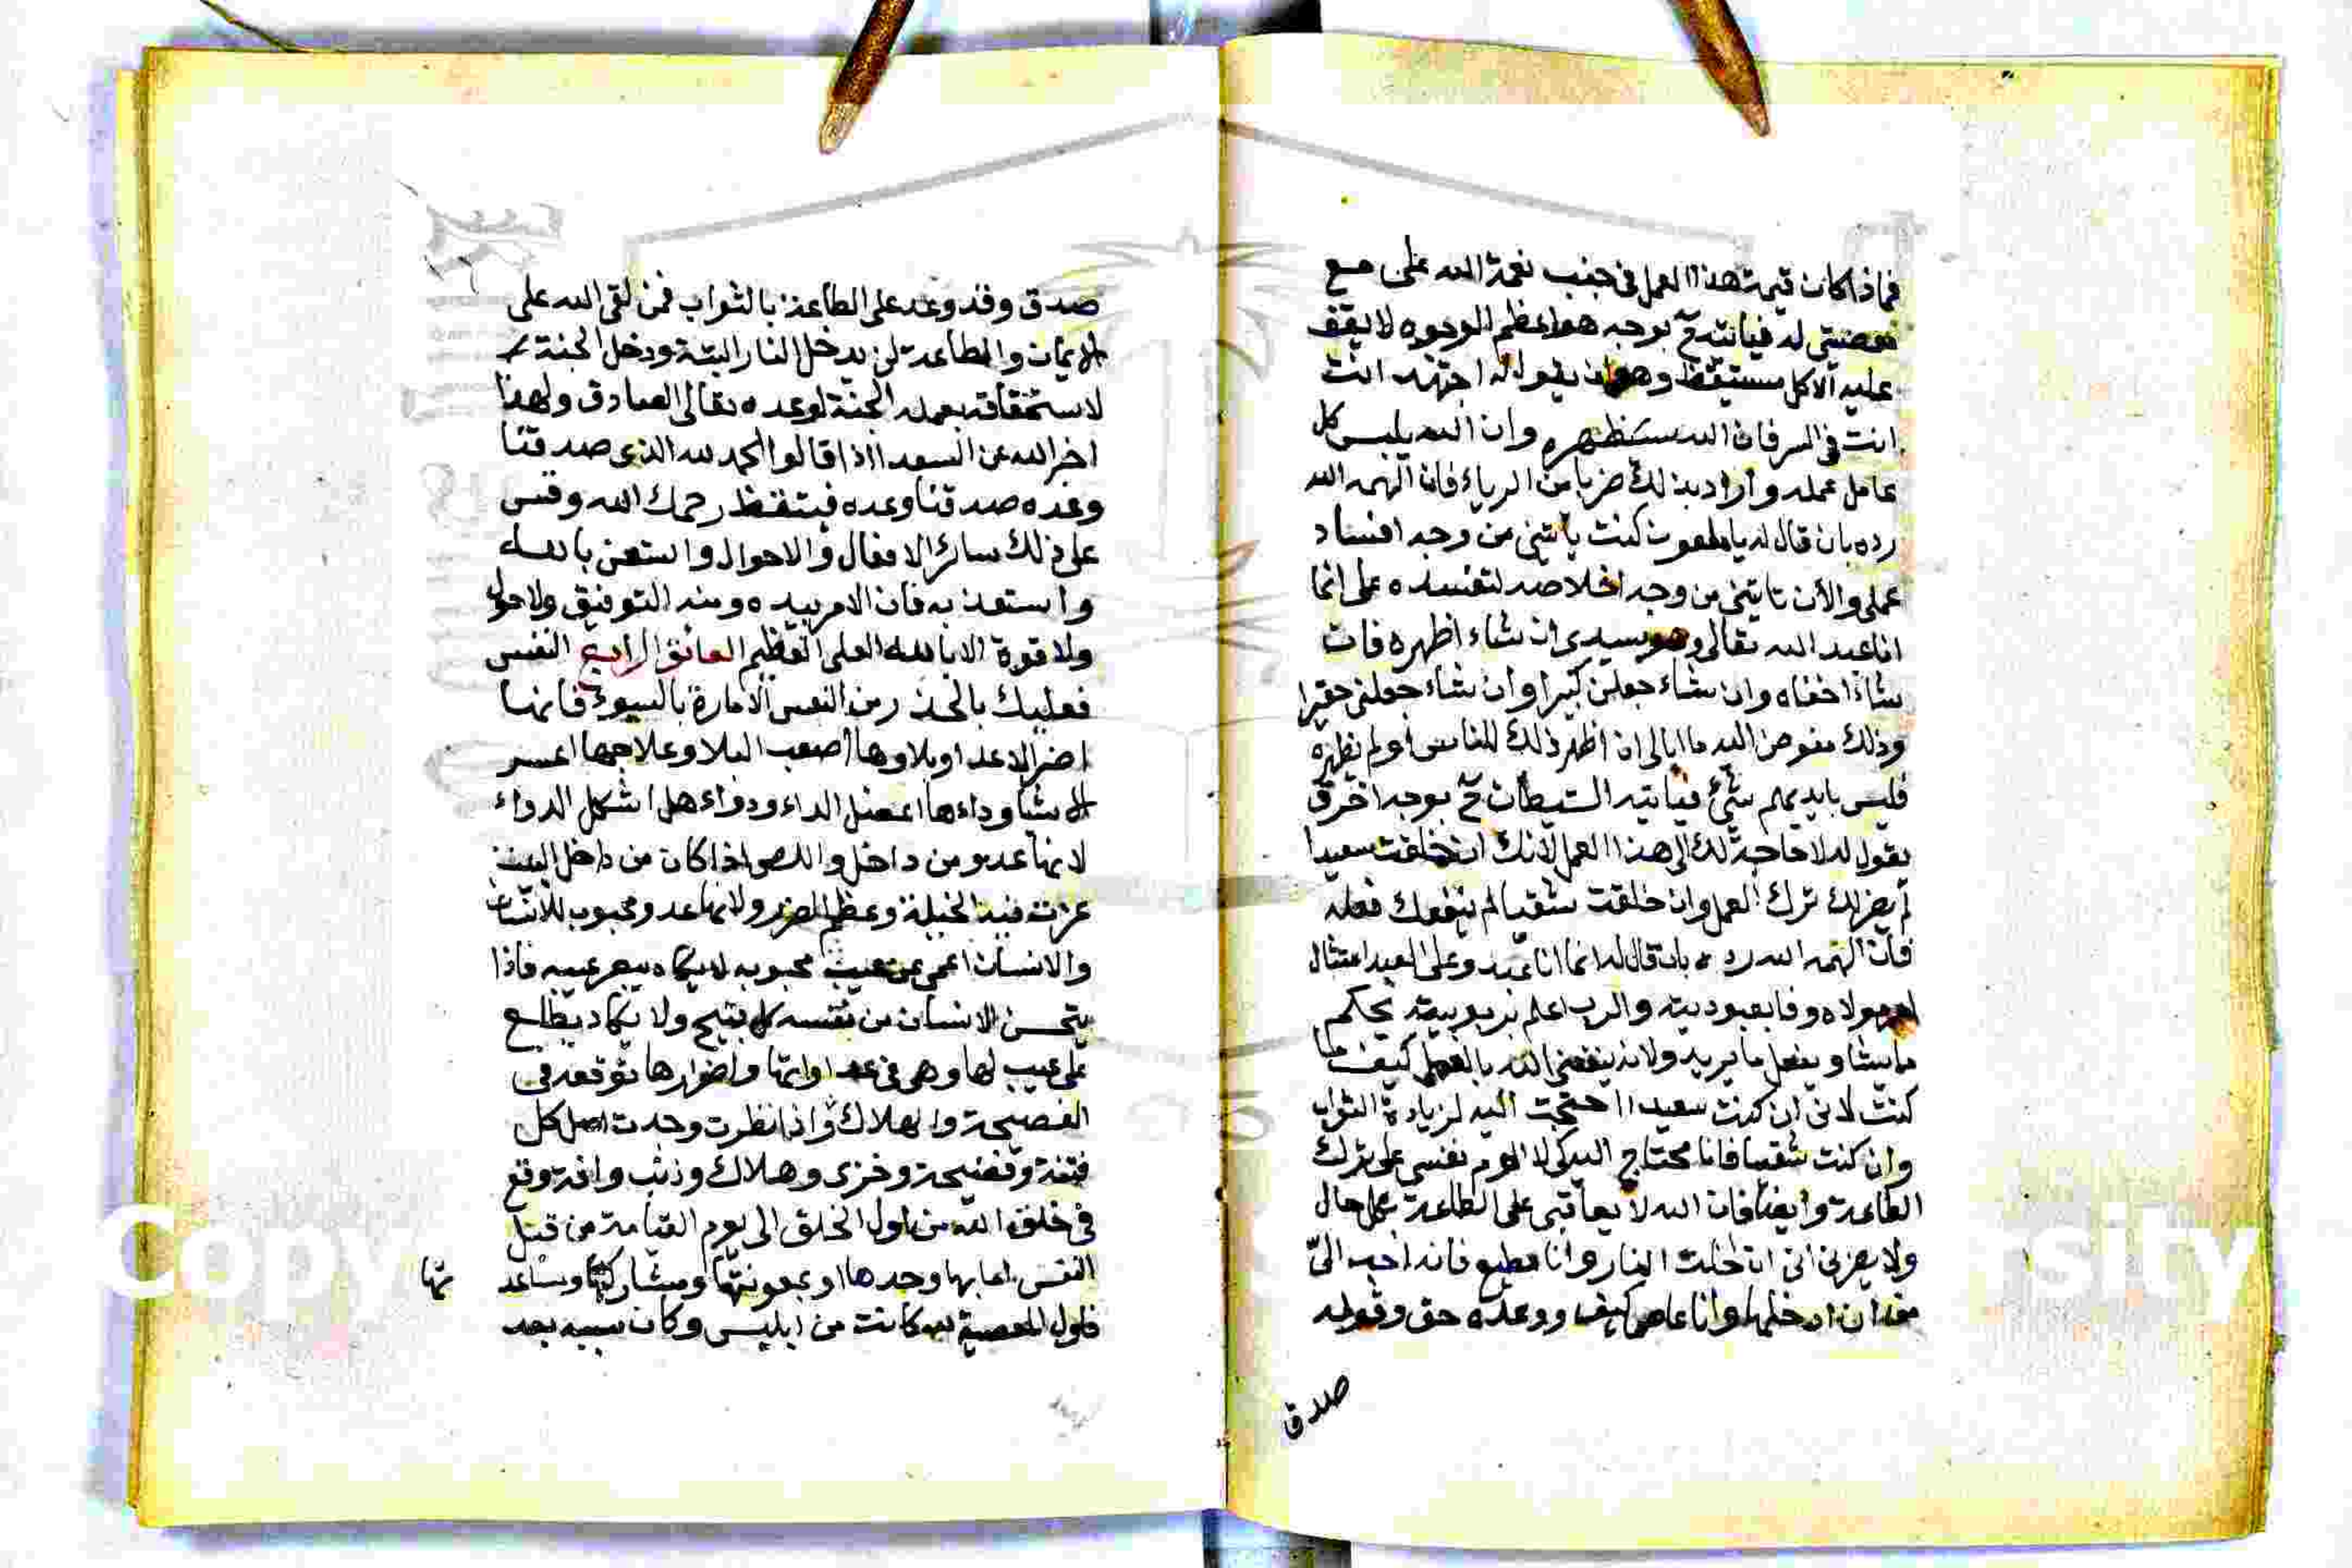 فماذا كان قيمة هذا العمل في جنب نعمة الله على مع
معصيتي له فيأتيه ح بوجه هو اعظم الوجوه لا يقف
عليه الا كل مستيقظ وهو ان يقول له اجتهد انت
انت في السر فان الله سيظهره وان الله يلبس كل
عامل عمله واراد بذلك ضربا من الرياء فان الهمه الله
رده بان قال له يا ملعون كنت تأتيني من وجه افساد
عملي والأن تأتيني من وجه اخلاصه لتفسده على انما
انا عبد الله تعالى وهو سيدي ان شاء اظهره فان
شاء اخفاه وان شاء جعلني كبيرا وان شاء جعلني حقيرا
وذلك مفوض اليه ما ابالي ان اظهر ذلك للناس أو لم يظهره
فليس بايديهم شئ فيأتيه الشيطان ح بوجه اخر ق
يقول له لا حاجة لك الى هذا العمل لأنك ان خلقت سعيدا
لم يضرك ترك العمل وان خلقت شقيا لم ينفعك فعله
فان الهمه الله رده بان قال له انما انا عبد وعلى العبد امتثال
امر مولاه وفا بعبوديته والرب اعلم بربوبيته يحكم
ما يشا ويفعل ما يريد ولانه ينفعني الله بالعمل كيف ما
كنت لاني ان كنت سعيدا احتجت اليه لزيادة الثواب
وان كنت شقيا فانا محتاج اليه كي لا الوم نفسي على ترك
الطاعة وأيضا فان الله لا يعاقبني على الطاعة بكل حال
ولا يضرني اني ان دخلت النار وانا مطيع فانه احب اليّ
من ان ادخلها وانا عاص كيف ووعده حق وقوله
صدق
صدق وقد وعد على الطاعة بالثواب فمن لقي الله على
الايمان والطاعة لن يدخل النار البتة ودخل الجنة
لاستحقاقه بعمله الجنة لوعده تعالى الصادق ولهذا
اخبر الله عن السعدا اذا قالوا الحمد لله الذي صدقنا
وعده صدقنا وعده فيتقظ رحمك الله وقس
على ذلك سائر الافعال والاحوال واستعن بالله
واستعذ به فان الامر بيده ومنه التوفيق ولا حول
ولا قوة الا بالله العلي العظيم العائق الرابع النفس
فعليك بالحذر من النفس الامارة بالسوء فانها
اضر الاعدا وبلاوها أصعب البلا وعلاجها اعسر
الاشيا وداءها اعضل الداء ودواءها اشكل الدواء
لانها عدو من داخل واللص اذا كان من داخل البيت
عزت فيه الحيلة وعظم الضرر ولانها عدو محبوب للانسان
والانسان اعمى عن عيب محبوبه لا يكاد يبصر عيبه فاذا
يستحسن الانسان من نفسه كل قبيح ولا يكاد يطلع
على عيب لها وهي في عداوتها واضرارها توقعه في
الفضيحة والهلاك واذا نظرت وجدت اصل كل
فتنة وفضيحة وخزى وهلاك وذنب وافة وقع
في خلق الله من اول الخلق الى يوم القيامة من قبل
النفس اما بها وحدها او بمعونتها ومشاركتها ومساعد
تها
فاول المعصية لله كانت من ابليس وكان سببه بعد